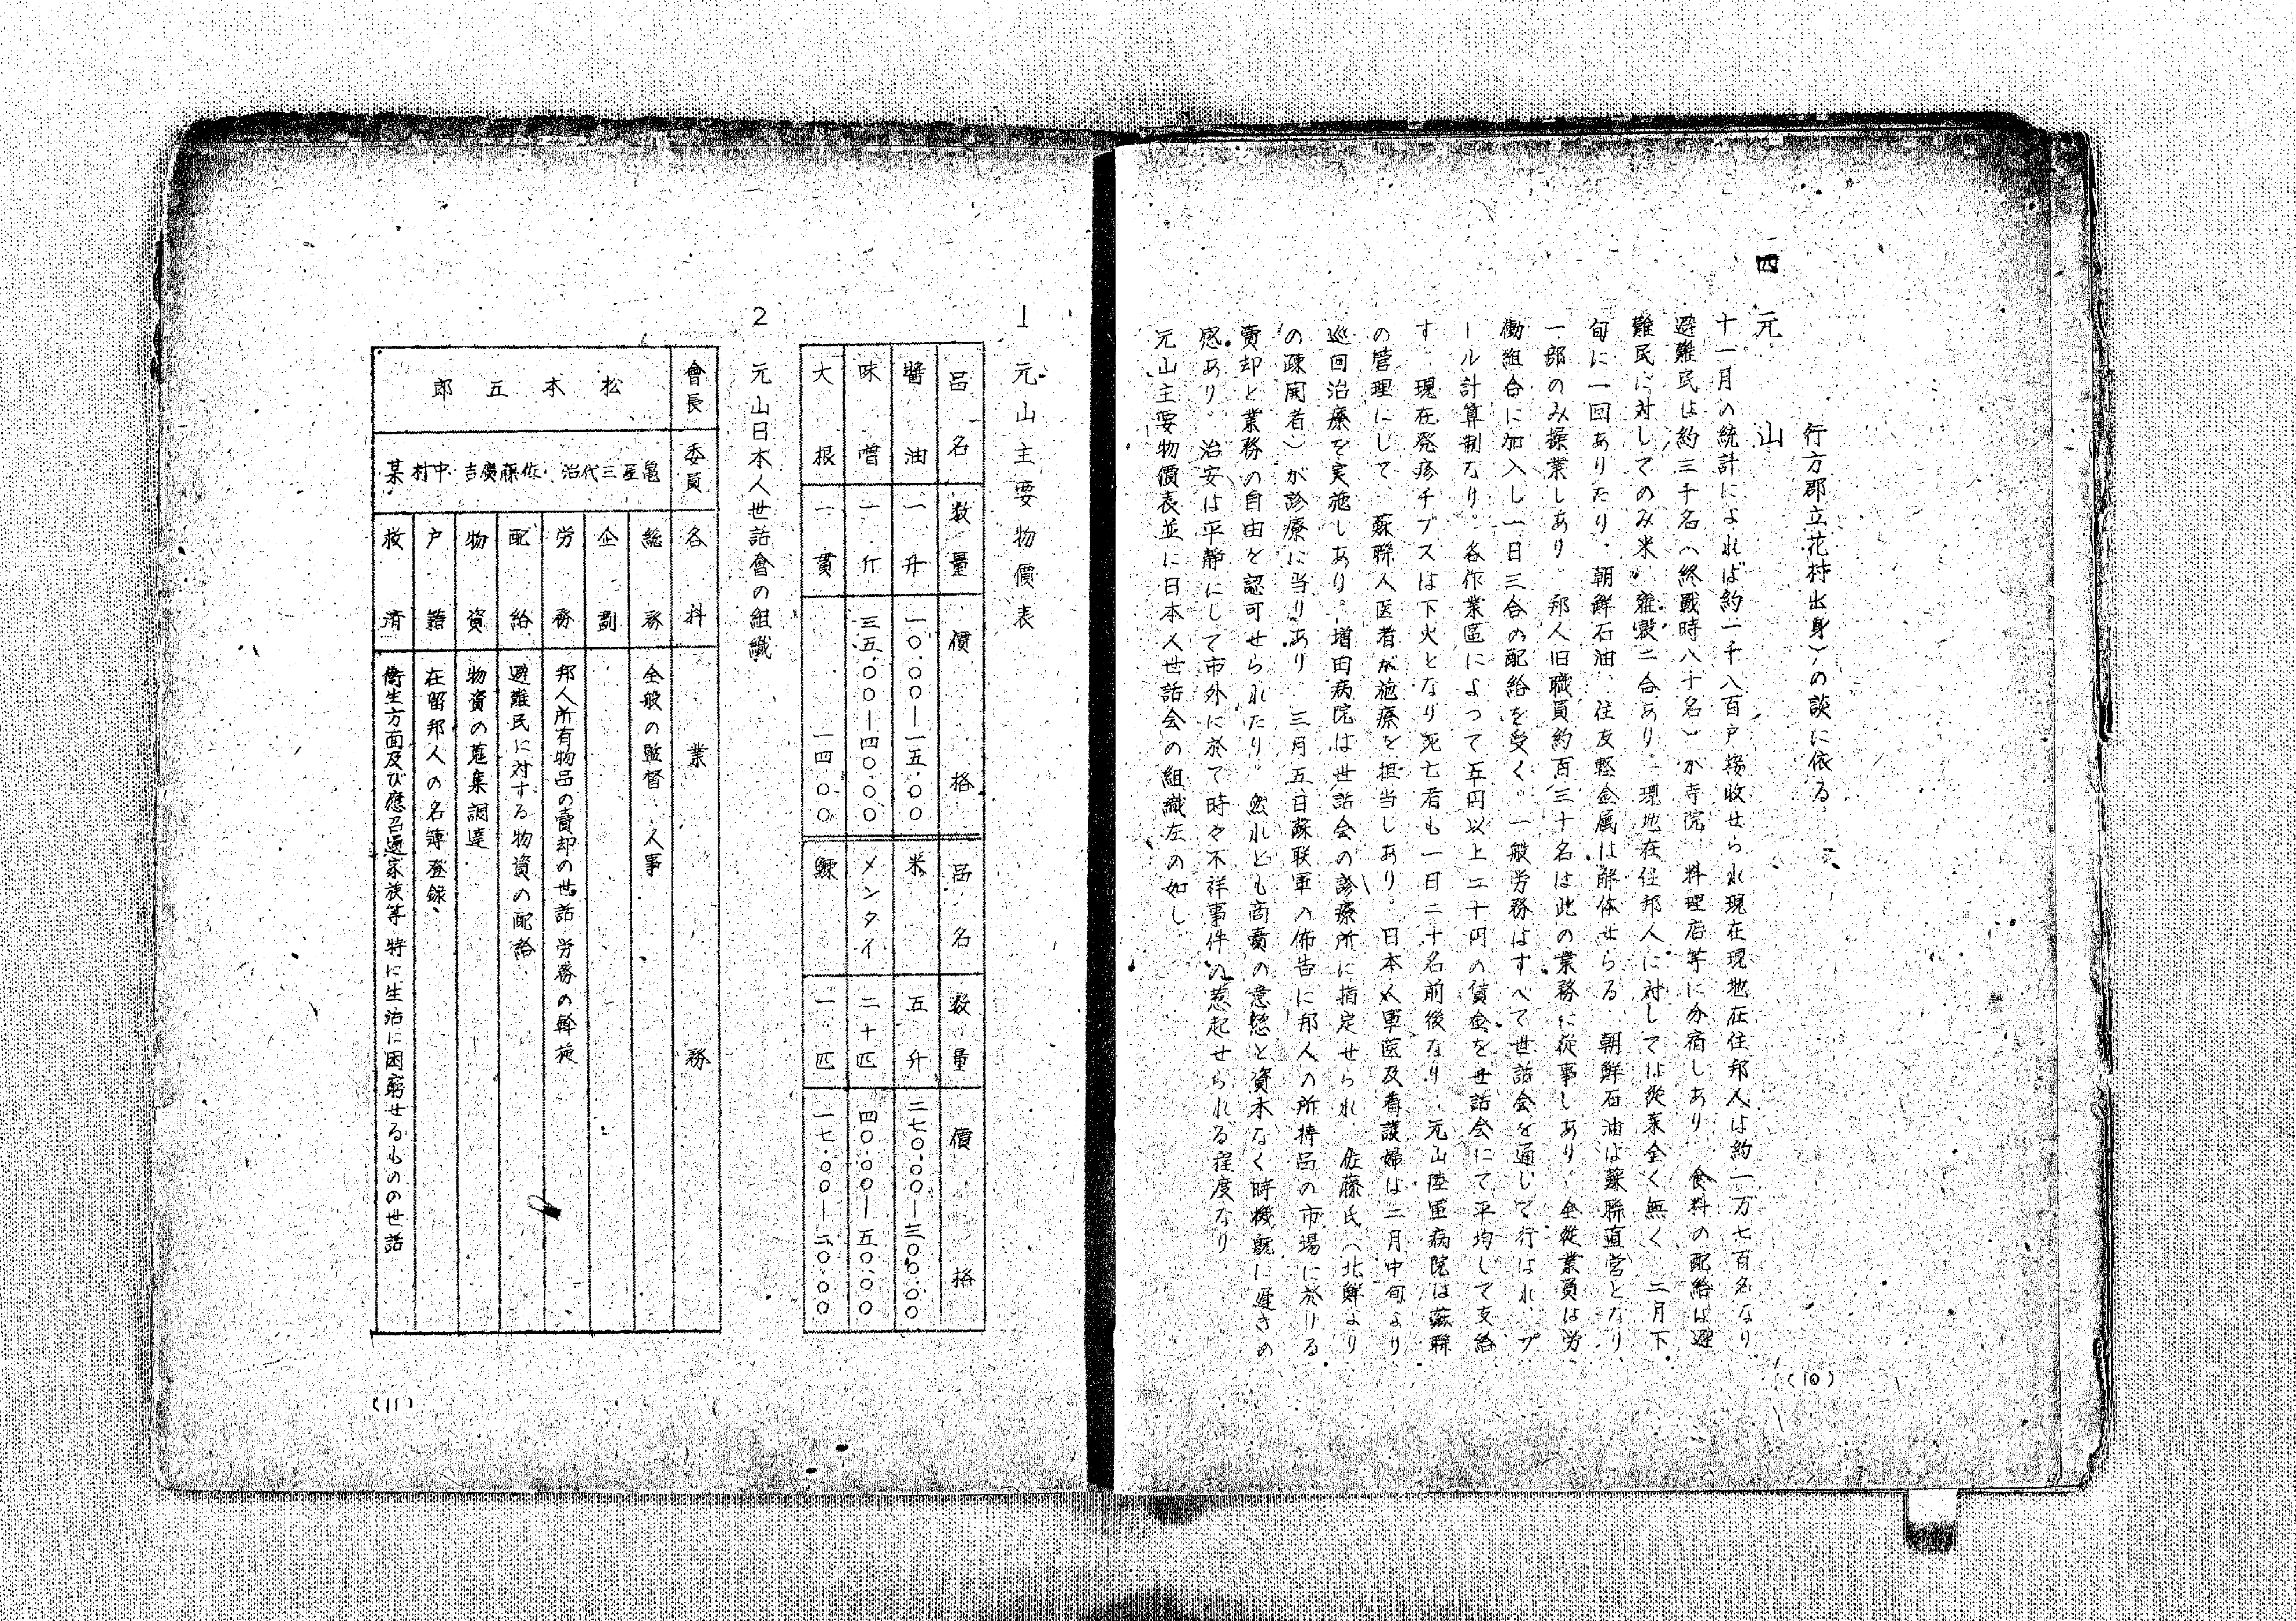 行方郡立花村出身)の談に依る
四 元山
十一月の統計によれば約一千八百戸接收せられ現在現地在住邦人は約一万七百名なり
避難民は約三千名(終戰時八十名)が寺院、料理店等に分宿しあり 食料の配給は避
難民に対してのみ米、雜穀二合あり 現地在住邦人に対しては從来全く無く 二月下
旬に一回ありたり 朝鮮石油、住友軽金属は解体せらる 朝鮮石油は蘇聯直営となり
一部のみ操業しあり 邦人旧職員約百三十名は此の業務に從事しあり 全從業員は労
働組合に加入し一日三合の配給を受く 一般労務はすべて世話会を通じて行はれ、プ
ール計算制なり 各作業區によつて五円以上二十円の賃金を世話会にて平均して支給
す 現在発疹チブスは下火となり死亡者も一日二十名前後なり 元山陸軍病院は蘇聯
の管理にして 蘇聯人医者が施療を担当しあり 日本人軍医及看護婦は二月中旬より
巡回治療を実施しあり 増田病院は世話会の診療所に指定せられ 佐藤氏(北鮮より
の疎開者)が診療に当りあり 三月五日蘇联軍の佈告に邦人の所持品の市場に於ける
賣却と業務の自由を認可せられたり 然れとも商賣の意慾と資本なく時機既に遅きの
感あり 治安は平静にして市外に於て時々不祥事件の惹起せられる程度なり
元山主要物價表並に日本人世話会の組織左の如し
(10)
1 元山主要物價表
品名 数量 價格 品名 数量 價格
醬油 一升 一〇.〇〇―一五.〇〇 米 五升 二七〇.〇〇―三〇〇.〇〇
味噌 一斤 三五.〇〇―四〇.〇〇 メンタイ 二十匹 四〇.〇〇―五〇.〇〇
大根 一貫 一四〇〇 鰊 一匹 一七.〇〇―二〇.〇〇
2 元山日本人世話會の組織
會長 委員 各科 業務
松本五郎
亀屋三代治・佐藤廣吉・中村某
総務 全般の監督 人事
企劃
労務 邦人所有物品の賣却の世話 労務の斡旋
配給 避難民に対する物資の配給
物資 物資の蒐集調達
戸籍 在留邦人の名簿登録
救済 衛生方面及び應召遺家族等 特に生活に困窮せるものの世話
(11)